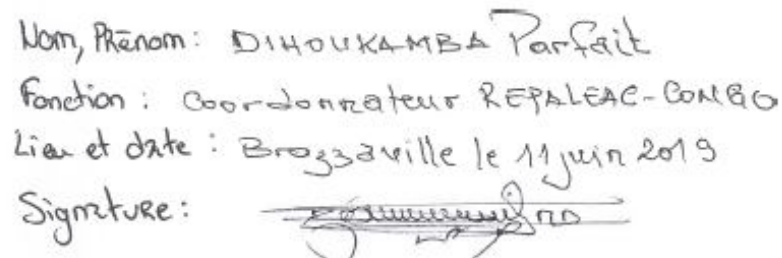 Nom, Prénom : DIHOUKAMBA Parfait
Fonction : Coordonnateur REPALEAC-CONGO
Lieu et date : Brazzaville le 11 juin 2019
Signature :